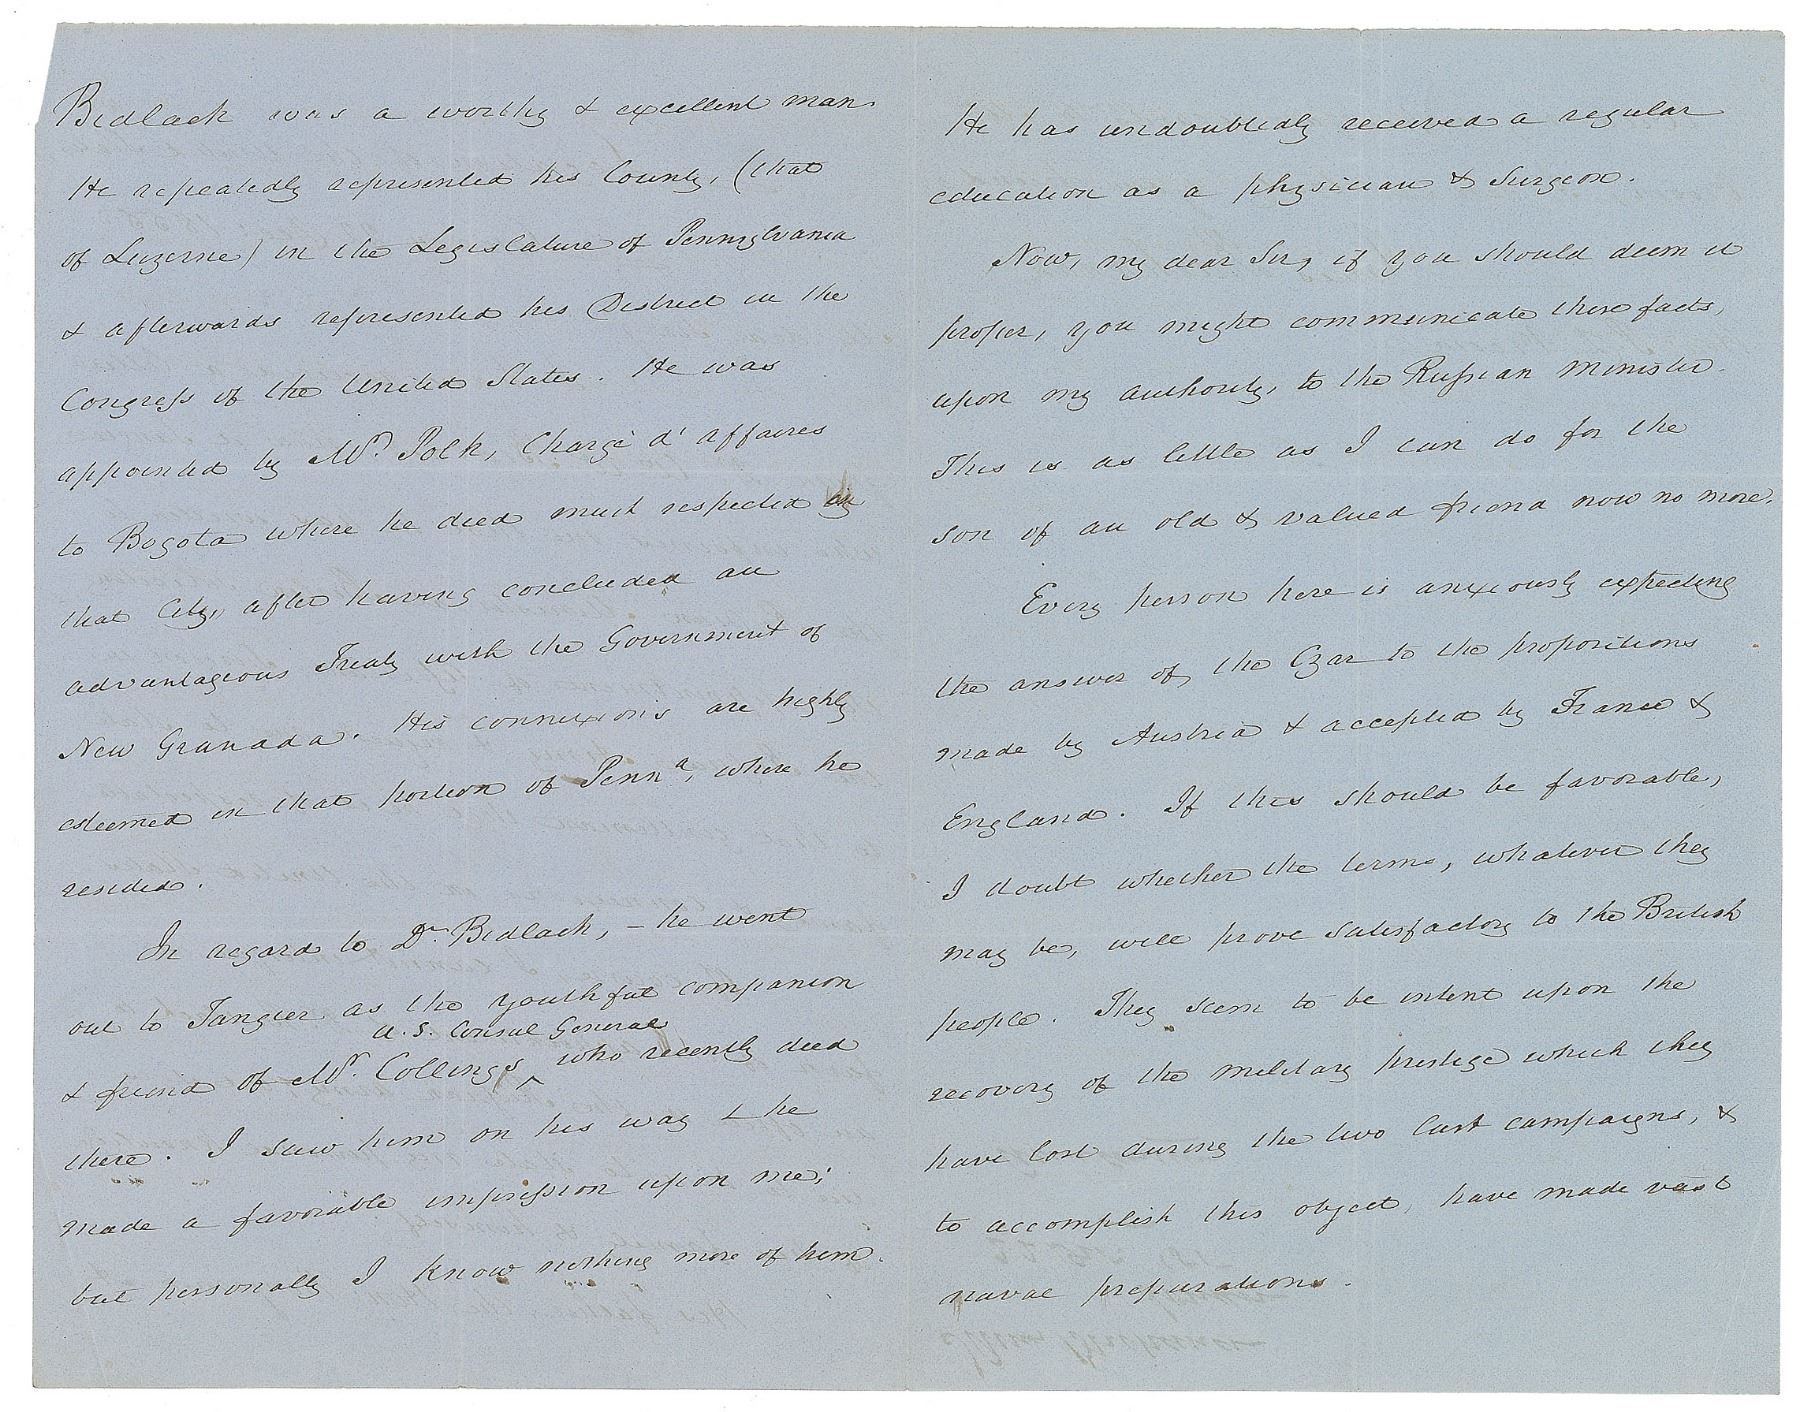 Bidlack was a worthy & excellent man.
He repeatedly represented his County, (that
of Luzerne) in the Legislature of Pennsylvania
& afterwards represented his District in the
Congress of the United States. He was
appointed by Mr. Polk, Chargé d'affaires
to Bogota where he died much respected in
that City, after having concluded an
advantageous Treaty with the Government of
New Granada. His connexions are highly
esteemed in that portion of Penna, where he
resided.
In regard to Dr Bidlack, – he went
out to Tangier as the youthful companion
U.S. Consul General
& friend of Mr. Collings ^ who recently died
there. I saw him on his way & he
made a favorable impression upon me;
but personally I know nothing more of him.
He has undoubtedly received a regular
education as a physician & Surgeon.
Now, my dear Sir, if you should deem it
proper, you might communicate these facts,
upon my authority, to the Russian Minister.
This is as little as I can do for the
son of an old & valued friend now no more.
Every person here is anxiously expecting
the answer of, the Czar to the propositions
made by Austria & accepted by France &
England. If this should be favorable,
I doubt whether the terms, whatever they
may be, will prove satisfactory to the British
people. They seem to be intent upon the
recovery of the military prestige which they
have lost during the two last campaigns, &
to accomplish this object, have made vast
naval preparations.